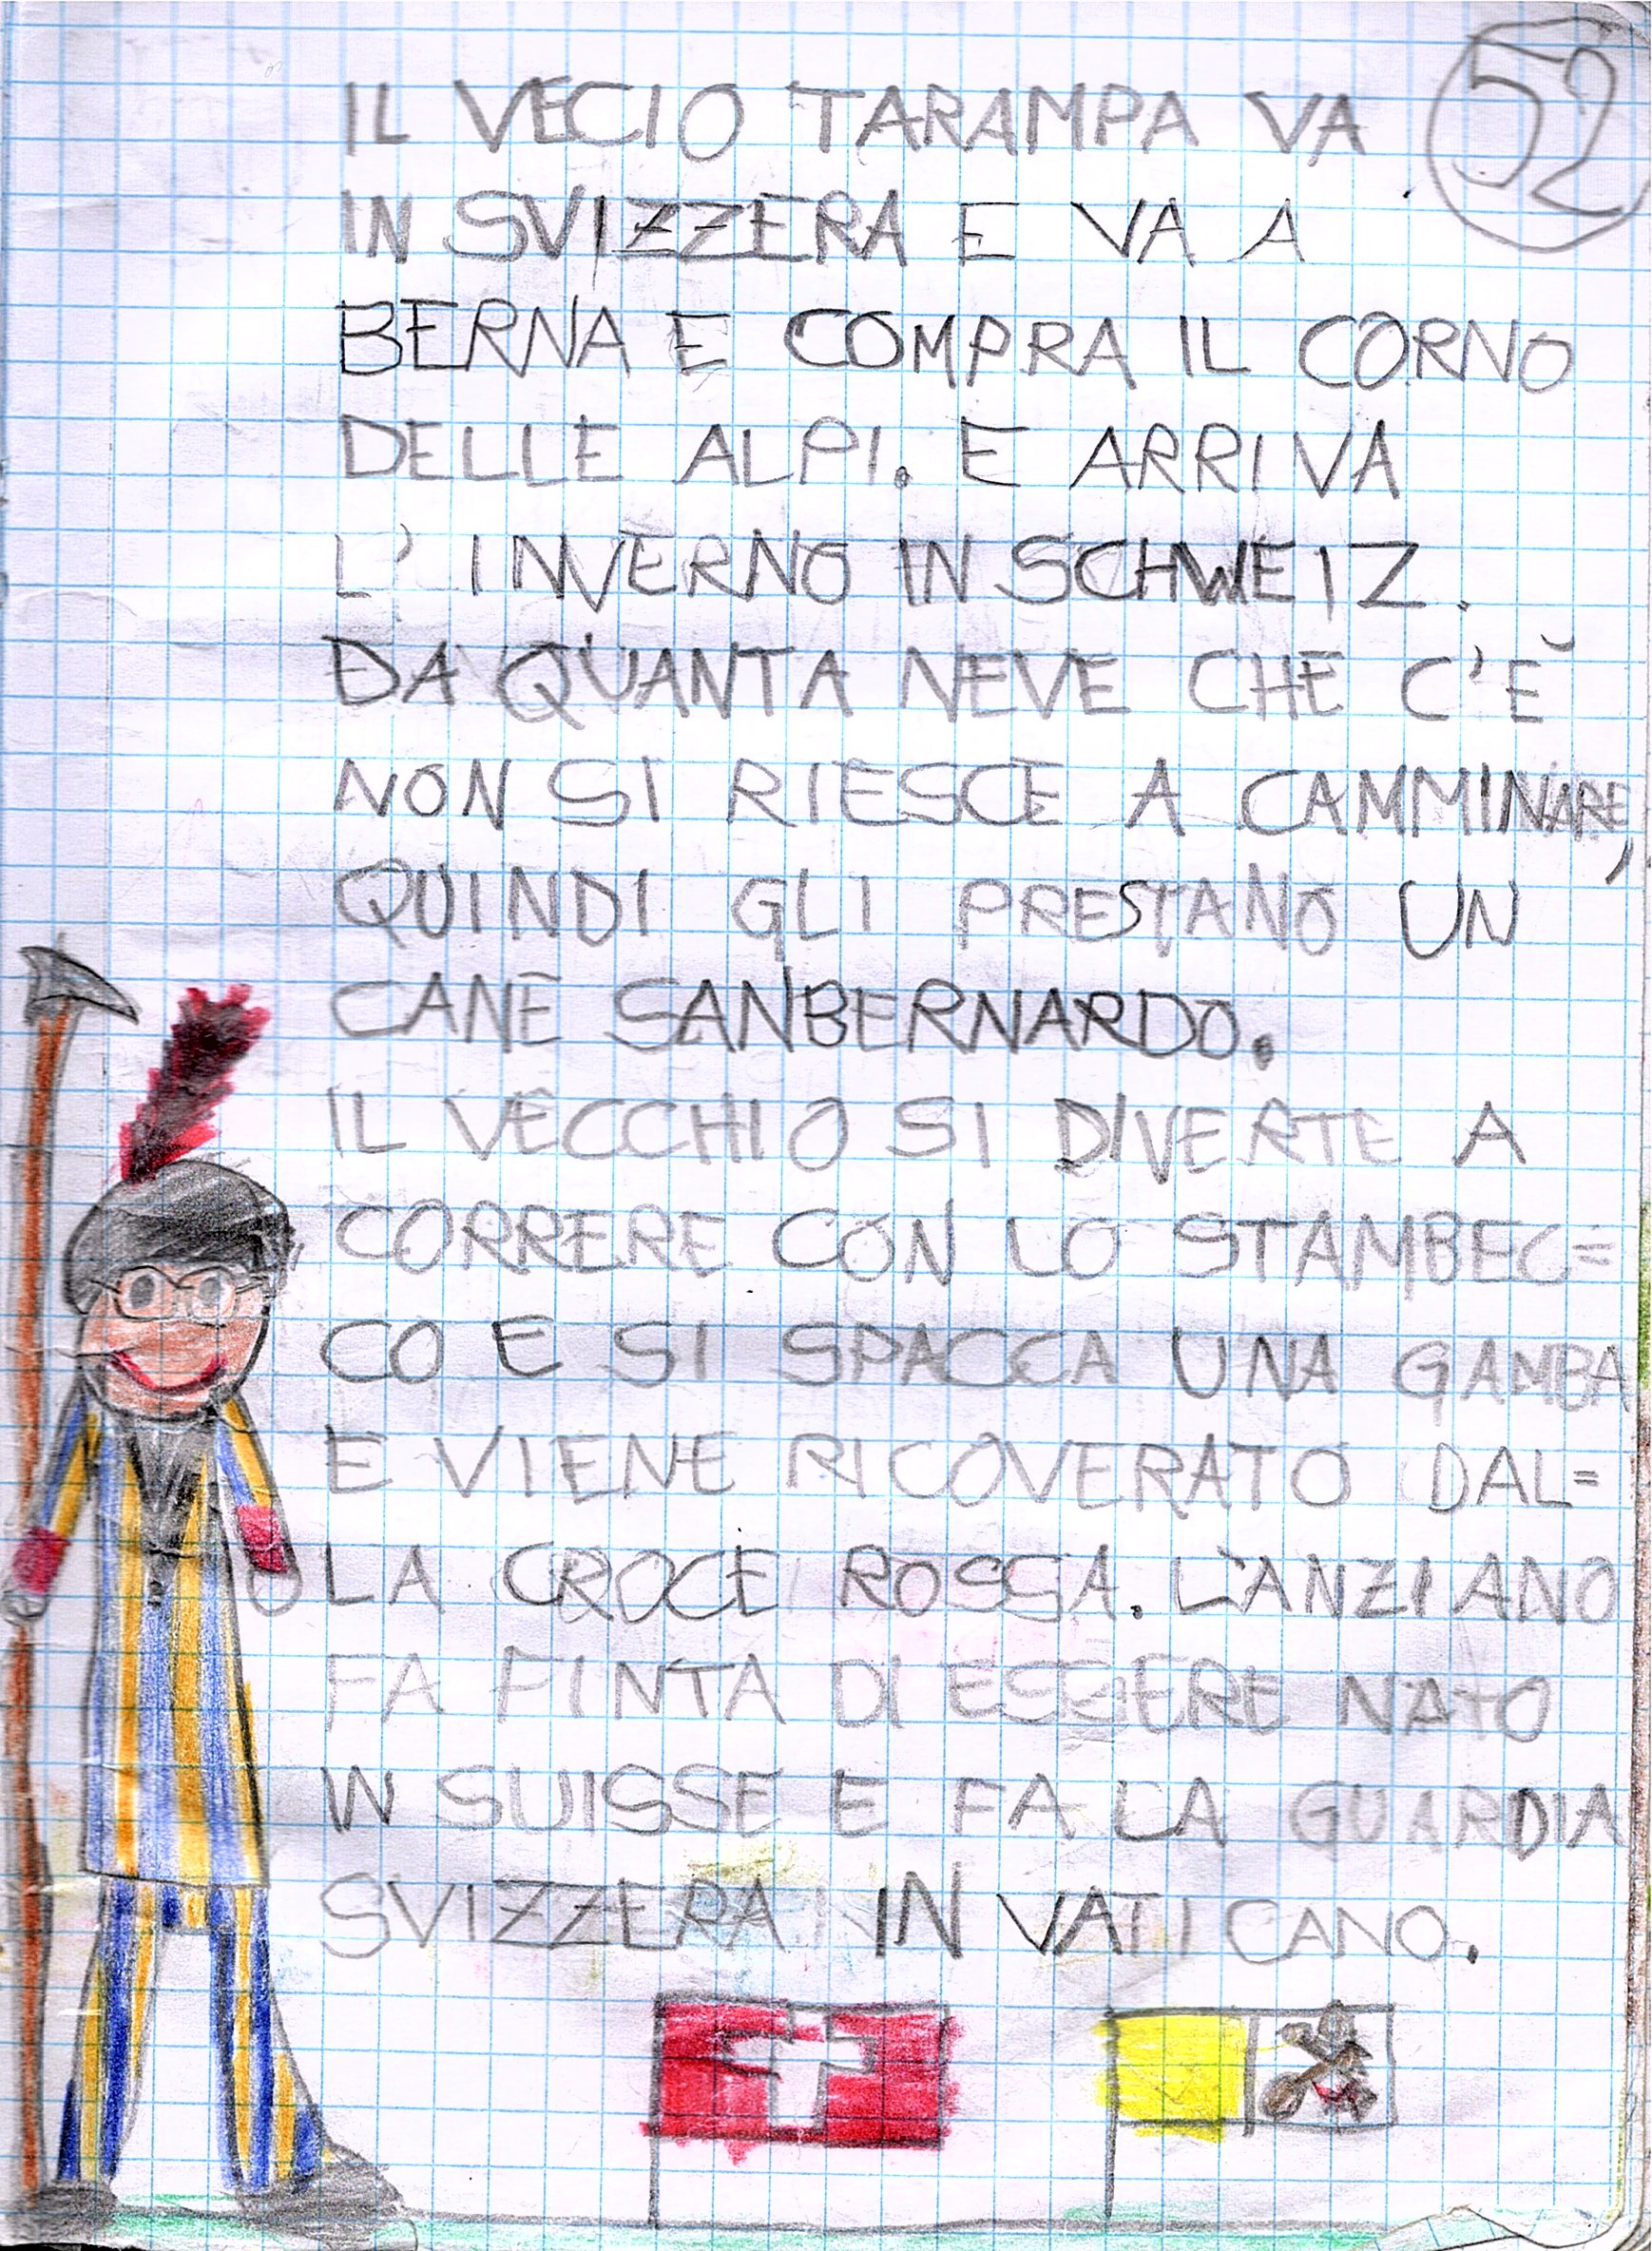 52
IL VECIO TARAMPA VA
IN SVIZZERA E VA A
BERNA E COMPRA IL CORNO
DELLE ALPI. E ARRIVA
L'INVERNO IN SCHWEIZ.
DA QUANTA NEVE CHE C'È
NON SI RIESCE A CAMMINARE,
QUINDI GLI PRESTANO UN
CANE SANBERNARDO.
IL VECCHIO SI DIVERTE A
CORRERE CON LO STAMBEC=
CO E SI SPACCA UNA GAMBA
E VIENE RICOVERATO DAL=
LA CROCE ROSSA. L'ANZIANO
FA FINTA DI ESSERE NATO
IN SUISSE E FA LA GUARDIA
SVIZZERA IN VATICANO.